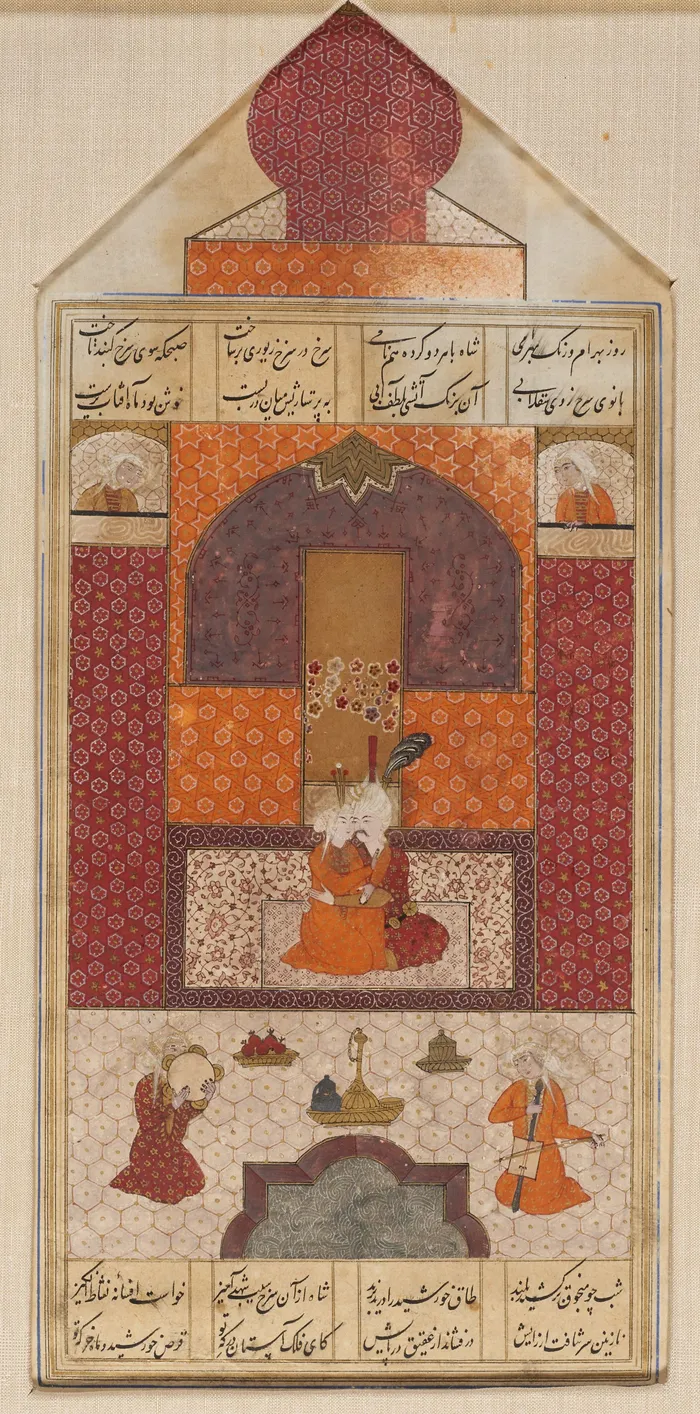 روز بهرام و رنگ بهرامی شاه با هر دو کرده هم نامی سرخ در سرخ زیوری برساخت صبحکه سوی سرخ کنبد تاخت
بانوی سرخ روی سقلابی آن برنک آتشی بلطف آبی به پرستاریش میان دربست خوش بود ماه آفتاب پرست
شب چو منجوق برکشید بلند طاق خورشید را درید پرند شاه از آن سرخ سیب شهد آمیز خواست افسانه نشاط انکیز
نازنین سر نتافت از رایش در فشاند از عقیق در پایش کای فلک آستان درکه تو قرص خورشید و ماه خرکه تو